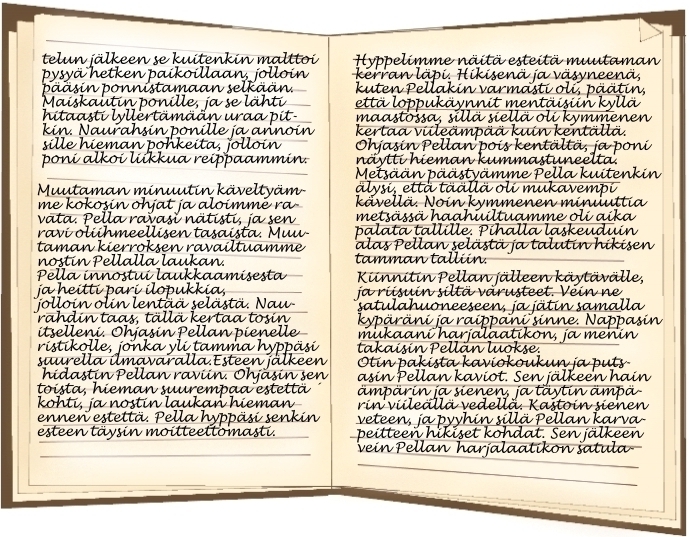 telun jälkeen se kuitenkin malttoi
pysyä hetken paikoillaan, jolloin
pääsin ponnistamaan selkään.
Maiskautin ponille, ja se lähti
hitaasti lyllertämään uraa pit-
kin. Naurahsin ponille ja annoin
sille hieman pohkeita, jolloin
poni alkoi liikkua reippaammin.
Muutaman minuutin käveltyäm-
me kokosin ohjat ja aloimme ra-
vata. Pella ravasi nätisti, ja sen
ravi oliihmeellisen tasaista. Muu-
taman kierroksen ravailtuamme
nostin Pellalla laukan.
Pella innostui laukkaamisesta
ja heitti pari ilopukkia,
jolloin olin lentää selästä. Nau-
rahdin taas, tällä kertaa tosin
itselleni. Ohjasin Pellan pienelle
ristikolle, jonka yli tamma hyppäsi
suurella ilmavaralla.Esteen jälkeen
hidastin Pellan raviin. Ohjasin sen
toista, hieman suurempaa estettä
kohti, ja nostin laukan hieman
ennen estettä. Pella hyppäsi senkin
esteen täysin moitteettomasti.
Hyppelimme näitä esteitä muutaman
kerran läpi. Hikisenä ja väsyneenä,
kuten Pellakin varmasti oli, päätin,
että loppukäynnit mentäisiin kyllä
maastossa, sillä siellä oli kymmenen
kertaa viileämpää kuin kentällä.
Ohjasin Pellan pois kentältä, ja poni
näytti hieman kummastuneelta.
Metsään päästyämme Pella kuitenkin
älysi, että täällä oli mukavempi
kävellä. Noin kymmenen minuuttia
metsässä haahuiltuamme oli aika
palata tallille. Pihalla laskeuduin
alas Pellan selästä ja talutin hikisen
tamman talliin.
Kiinnitin Pellan jälleen käytävälle,
ja riisuin siltä varusteet. Vein ne
satulahuoneeseen, ja jätin samalla
kypäräni ja raippani sinne. Nappasin
mukaani harjalaatikon, ja menin
takaisin Pellan luokse.
Otin pakista kaviokoukun ja puts-
asin Pellan kaviot. Sen jälkeen hain
ämpärin ja sienen, ja täytin ämpä-
rin viileällä vedellä. Kastoin sienen
veteen, ja pyyhin sillä Pellan karva-
peitteen hikiset kohdat. Sen jälkeen
vein Pellan harjalaatikon satula-